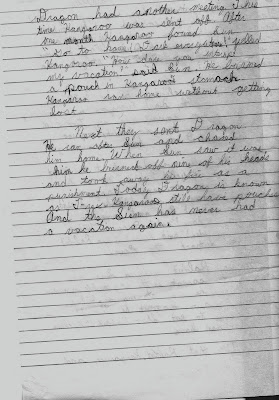 Dragon had another meeting. This
time Kangaroo was sent off. After
one month Kangaroo found him.
to have! Dark everywhere yelled
Kangaroo. "You have
my vacation" said Sun. He burned
a pouch in Kangaroo's stomach.
Kangaroo ran home without getting
lost.
Next they sent Dragon
He ran after Sun and chased
him home. When Sun saw it was
him he burned off nine of his heads
and took away his fire as a
punishment. Today Dragon is known
as Kangaroos still have pouches
And the Sun has never had
a vacation again.